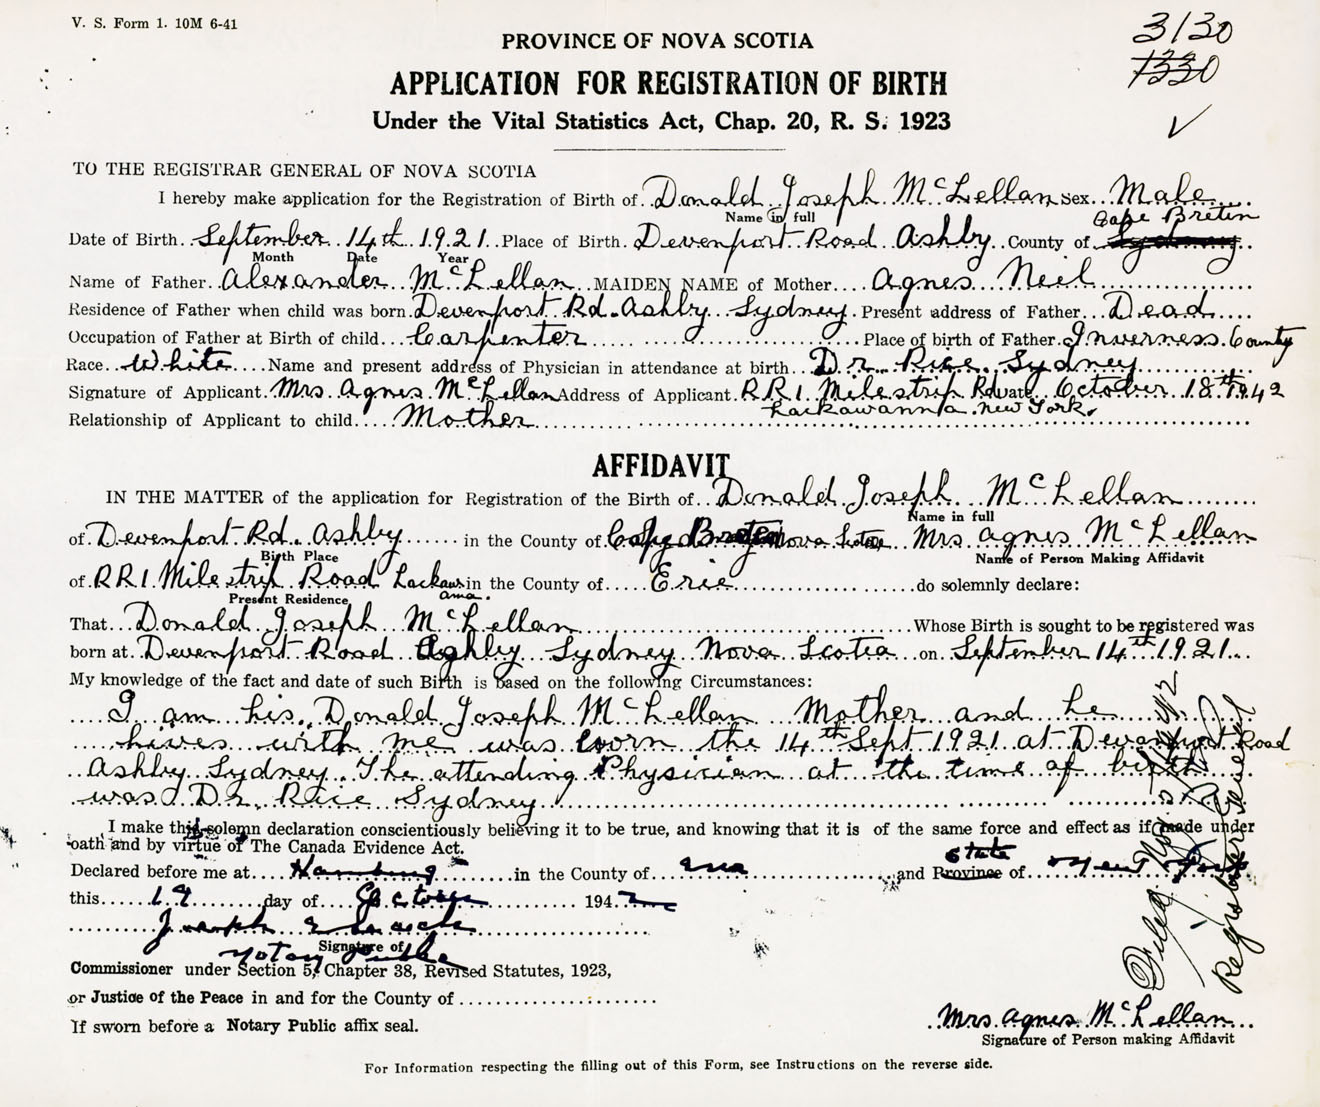 V. S. Form 1. 10M 6-41
3130
1330
PROVINCE OF NOVA SCOTIA
APPLICATION FOR REGISTRATION OF BIRTH
Under the Vital Statistics Act, Chap. 20, R. S. 1923
TO THE REGISTRAR GENERAL OF NOVA SCOTIA
I hereby make application for the Registration of Birth of Donald Joseph McLellan Sex Male
Name in full
Cape Breton
Date of Birth September 14th 1921 Place of Birth Devenport Road Ashby County of Sydney
Month Date Year
Name of Father Alexander McLellan MAIDEN NAME of Mother Agnes Neil
Residence of Father when child was born Devenport Rd. Ashby Sydney Present address of Father Dead
Occupation of Father at Birth of child Carpenter Place of birth of Father Inverness County
Race White Name and present address of Physician in attendance at birth Dr. Rice Sydney
Signature of Applicant Mrs Agnes McLellan Address of Applicant RR1. Milestrip Rd Date October 18th 1942
Lackawanna New York.
Relationship of Applicant to child Mother
AFFIDAVIT
IN THE MATTER of the application for Registration of the Birth of Donald Joseph McLellan
Name in full
of Devenport Rd. Ashby in the County of Cape Breton Nova Scotia Mrs Agnes McLellan
Birth Place Name of Person Making Affidavit
of RR1. Milestrip Road Lackawanna. in the County of Erie do solemnly declare:
Present Residence
That Donald Joseph McLellan Whose Birth is sought to be registered was
born at Devenport Road Ashby Sydney Nova Scotia on September 14th 1921
My knowledge of the fact and date of such Birth is based on the following Circumstances:
I am his Donald Joseph McLellan Mother and he
lives with me was born the 14th Sept 1921 at Devenport Road
Ashby Sydney. The attending Physician at the time of birth
was Dr. Rice Sydney
I make this solemn declaration conscientiously believing it to be true, and knowing that it is of the same force and effect as if made under
oath and by virtue of The Canada Evidence Act.
State
Declared before me at Hamburg in the County of Erie and Province of New York
this 19 day of October 1942
Joseph
Signature of
Notary Public
Commissioner under Section 5, Chapter 38, Revised Statutes, 1923,
or Justice of the Peace in and for the County of
If sworn before a Notary Public affix seal.
Mrs. Agnes McLellan
Signature of Person making Affidavit
For Information respecting the filling out of this Form, see Instructions on the reverse side.
Filed Nov.
Registrar General